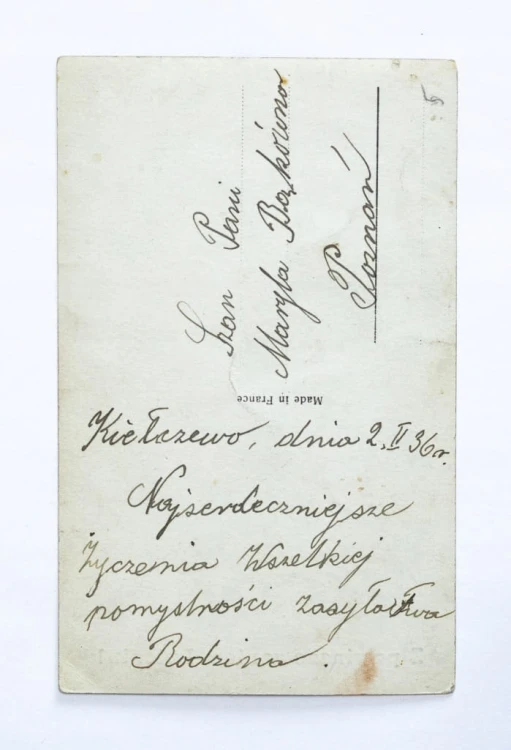 Szan Pani
Maryla Bąkówna
Poznań
5
Made in France
Kiełczewo, dnia 2. II 36 r.
Najserdeczniejsze
życzenia Wszelkiej
pomyślności zasyła
Rodzina.